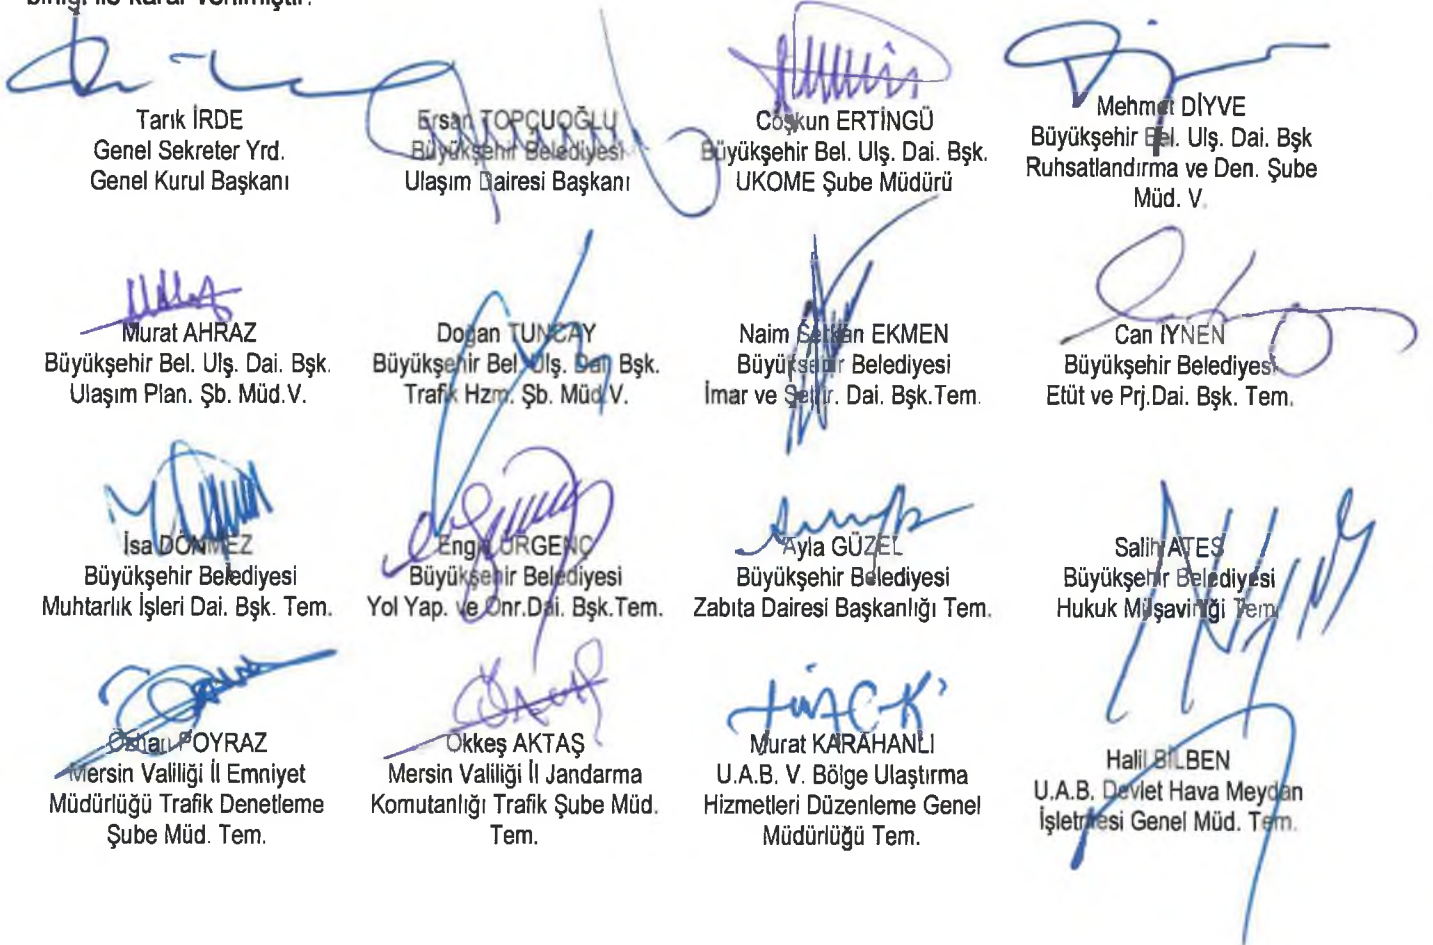 birliği ile karar verilmiştir.
Tarık İRDE
Genel Sekreter Yrd.
Genel Kurul Başkanı
Ersan TOPÇUOĞLU
Büyükşehir Belediyesi
Ulaşım Dairesi Başkanı
Coşkun ERTİNGÜ
Büyükşehir Bel. Ulş. Dai. Bşk.
UKOME Şube Müdürü
Mehmet DİYVE
Büyükşehir Bel. Ulş. Dai. Bşk
Ruhsatlandırma ve Den. Şube
Müd. V.
Murat AHRAZ
Büyükşehir Bel. Ulş. Dai. Bşk.
Ulaşım Plan. Şb. Müd.V.
Doğan TUNCAY
Büyükşehir Bel. Ulş. Dai. Bşk.
Trafik Hzm. Şb. Müd.V.
Naim Serkan EKMEN
Büyükşehir Belediyesi
İmar ve Şehir. Dai. Bşk.Tem.
Can İYNEN
Büyükşehir Belediyesi
Etüt ve Prj.Dai. Bşk. Tem.
İsa DÖNMEZ
Büyükşehir Belediyesi
Muhtarlık İşleri Dai. Bşk. Tem.
Engin
Büyükşehir Belediyesi
Yol Yap. ve Onr.Dai. Bşk.Tem.
Ayla GÜZEL
Büyükşehir Belediyesi
Zabıta Dairesi Başkanlığı Tem.
Salih ATEŞ
Büyükşehir Belediyesi
Hukuk Müşavirliği Tem.
POYRAZ
Mersin Valiliği İl Emniyet
Müdürlüğü Trafik Denetleme
Şube Müd. Tem.
Ökkeş AKTAŞ
Mersin Valiliği İl Jandarma
Komutanlığı Trafik Şube Müd.
Tem.
Murat KARAHANLI
U.A.B. V. Bölge Ulaştırma
Hizmetleri Düzenleme Genel
Müdürlüğü Tem.
Halil BİLBEN
U.A.B. Devlet Hava Meydan
İşletmesi Genel Müd. Tem.